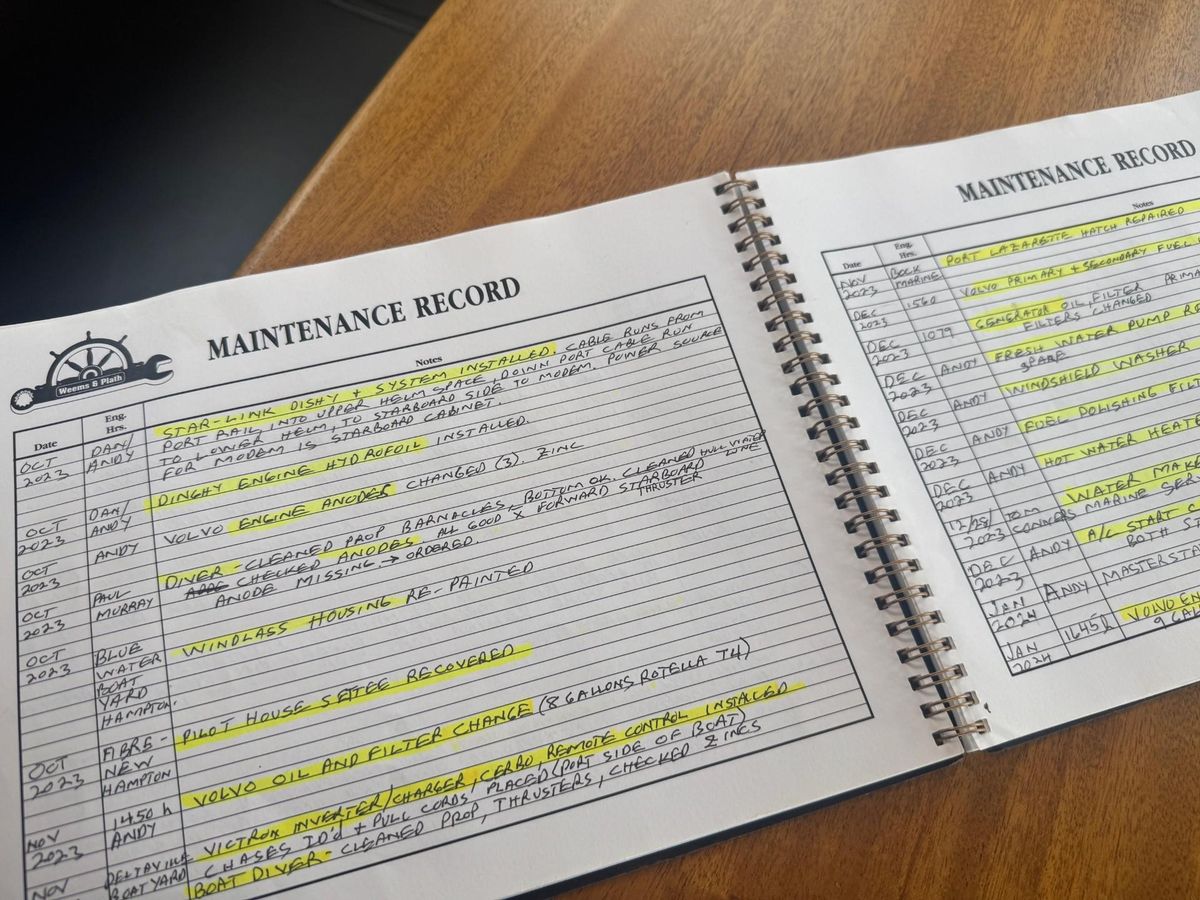 MAINTENANCE RECORD
Weems & Plath
Date
Eng. Hrs.
Notes
OCT 2023 DAN/ ANDY STAR-LINK DISHY + SYSTEM INSTALLED. CABLE RUNS FROM
PORT RAIL INTO UPPER HELM SPACE, DOWN PORT CABLE RUN
TO LOWER HELM, TO STARBOARD SIDE TO MODEM. POWER SOURCE
FOR MODEM IS STARBOARD CABINET.
OCT 2023 DAN/ ANDY DINGHY ENGINE HYDROFOIL INSTALLED.
OCT 2023 ANDY VOLVO ENGINE ANODES CHANGED (3). ZINC
OCT 2023 PAUL MURRAY DIVER - CLEANED PROP BARNACLES, BOTTOM OK. CLEANED HULL WATER LINE
CHECKED ANODES. ALL GOOD X FORWARD STARBOARD THRUSTER
ANODE MISSING → ORDERED.
OCT 2023 BLUE WATER BOAT YARD HAMPTON. WINDLASS HOUSING RE-PAINTED
OCT 2023 FIBRE-NEW HAMPTON PILOT HOUSE SETTEE RECOVERED
NOV 2023 1450 h ANDY VOLVO OIL AND FILTER CHANGE (8 GALLONS ROTELLA T4)
NOV DELTAVILLE BOATYARD VICTRON INVERTER/CHARGER, CERBO, REMOTE CONTROL INSTALLED
CHASES ID'd + PULL CORDS PLACED (PORT SIDE OF BOAT)
BOAT DIVER - CLEANED PROP, THRUSTERS, CHECKED ZINGS
MAINTENANCE RECORD
Date
Eng. Hrs.
Notes
NOV 2023 BOCK MARINE PORT LAZARETTE HATCH REPAIRED
DEC 2023 1560 VOLVO PRIMARY + SECONDARY FUEL
DEC 2023 1079 GENERATOR OIL, FILTER
FILTERS CHANGED
DEC 2023 ANDY FRESH WATER PUMP
SPARE
DEC 2023 ANDY WINDSHIELD WASHER
DEC 2023 ANDY FUEL POLISHING
DEC 2023 ANDY HOT WATER
12/28/2023 TOM CONNERS MARINE WATER
DEC 2023 ANDY A/C START
BOTH
JAN 2024 ANDY
JAN 2024 1645 VOLVO
9